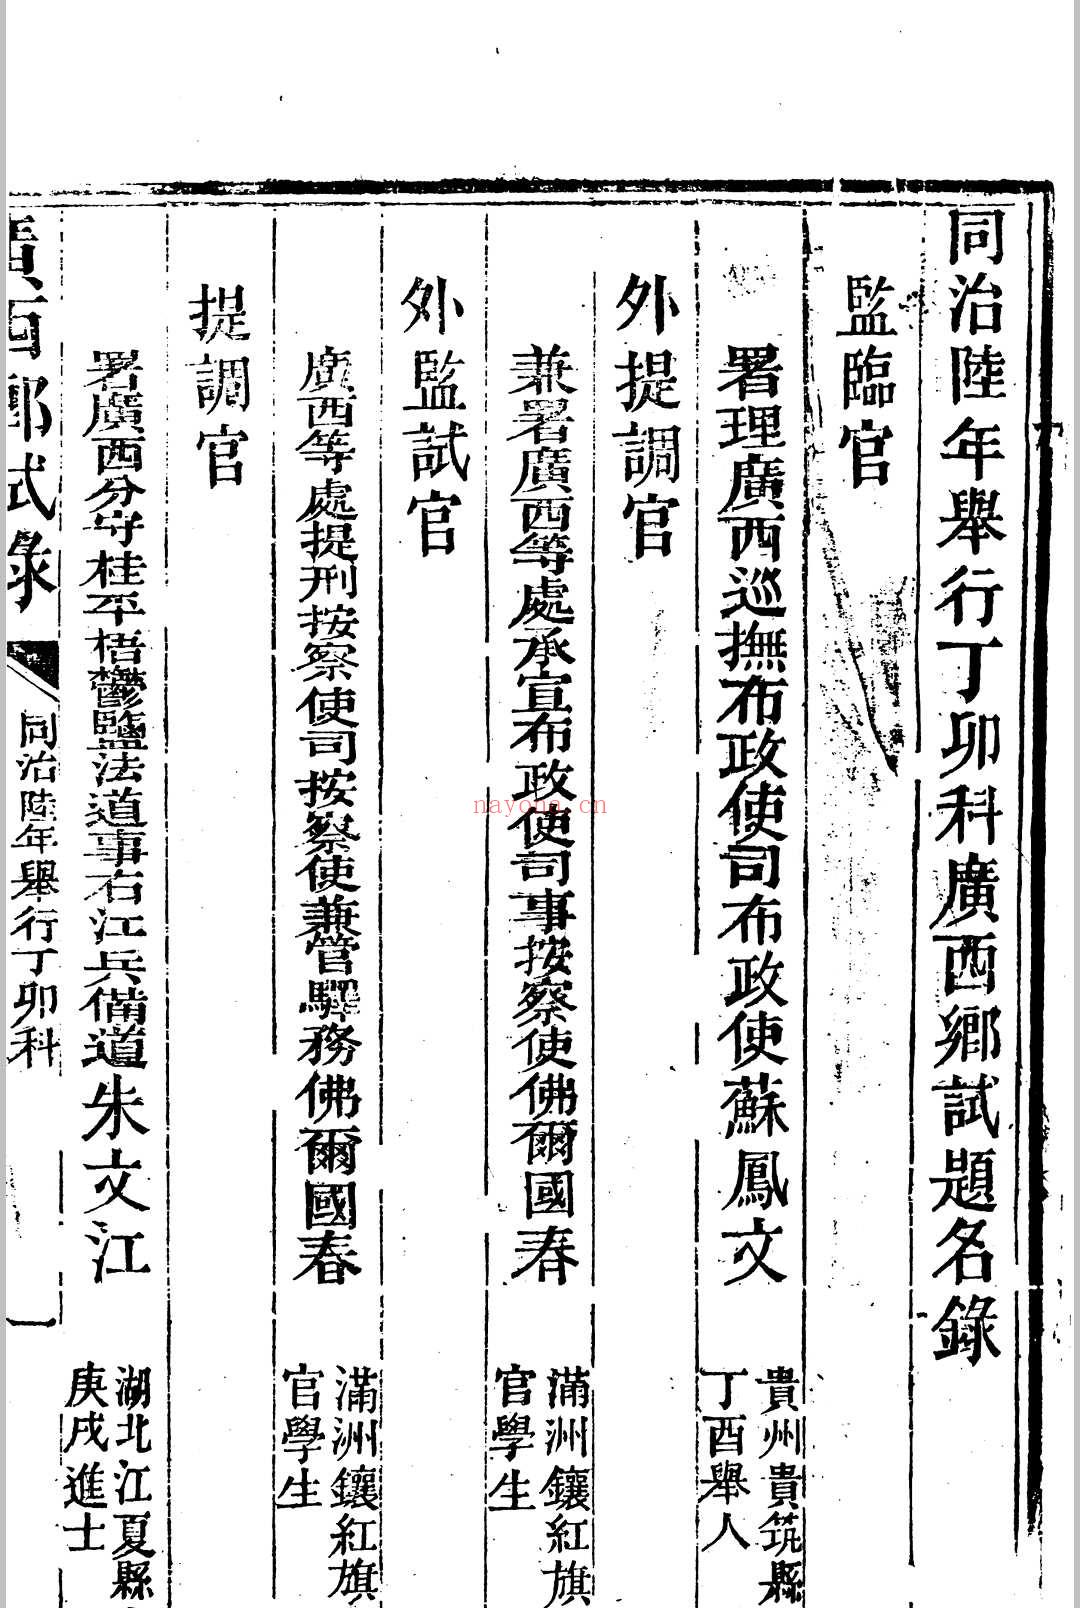 同治陸年舉行丁卯科廣西鄉試題名錄
監臨官
署理廣西巡撫布政使司布政使蘇鳳文
貴州貴筑縣
丁酉舉人
外提調官
兼署廣西等處承宣布政使司事按察使佛爾國春
滿洲鑲紅旗
官學生
外監試官
廣西等處提刑按察使司按察使兼管驛務佛爾國春
滿洲鑲紅旗
官學生
提調官
署廣西分守桂平梧鬱鹽法道事右江兵備道朱文江
湖北江夏縣
庚戌進士
廣西鄉試錄
同治陸年舉行丁卯科
一
nayona.cn